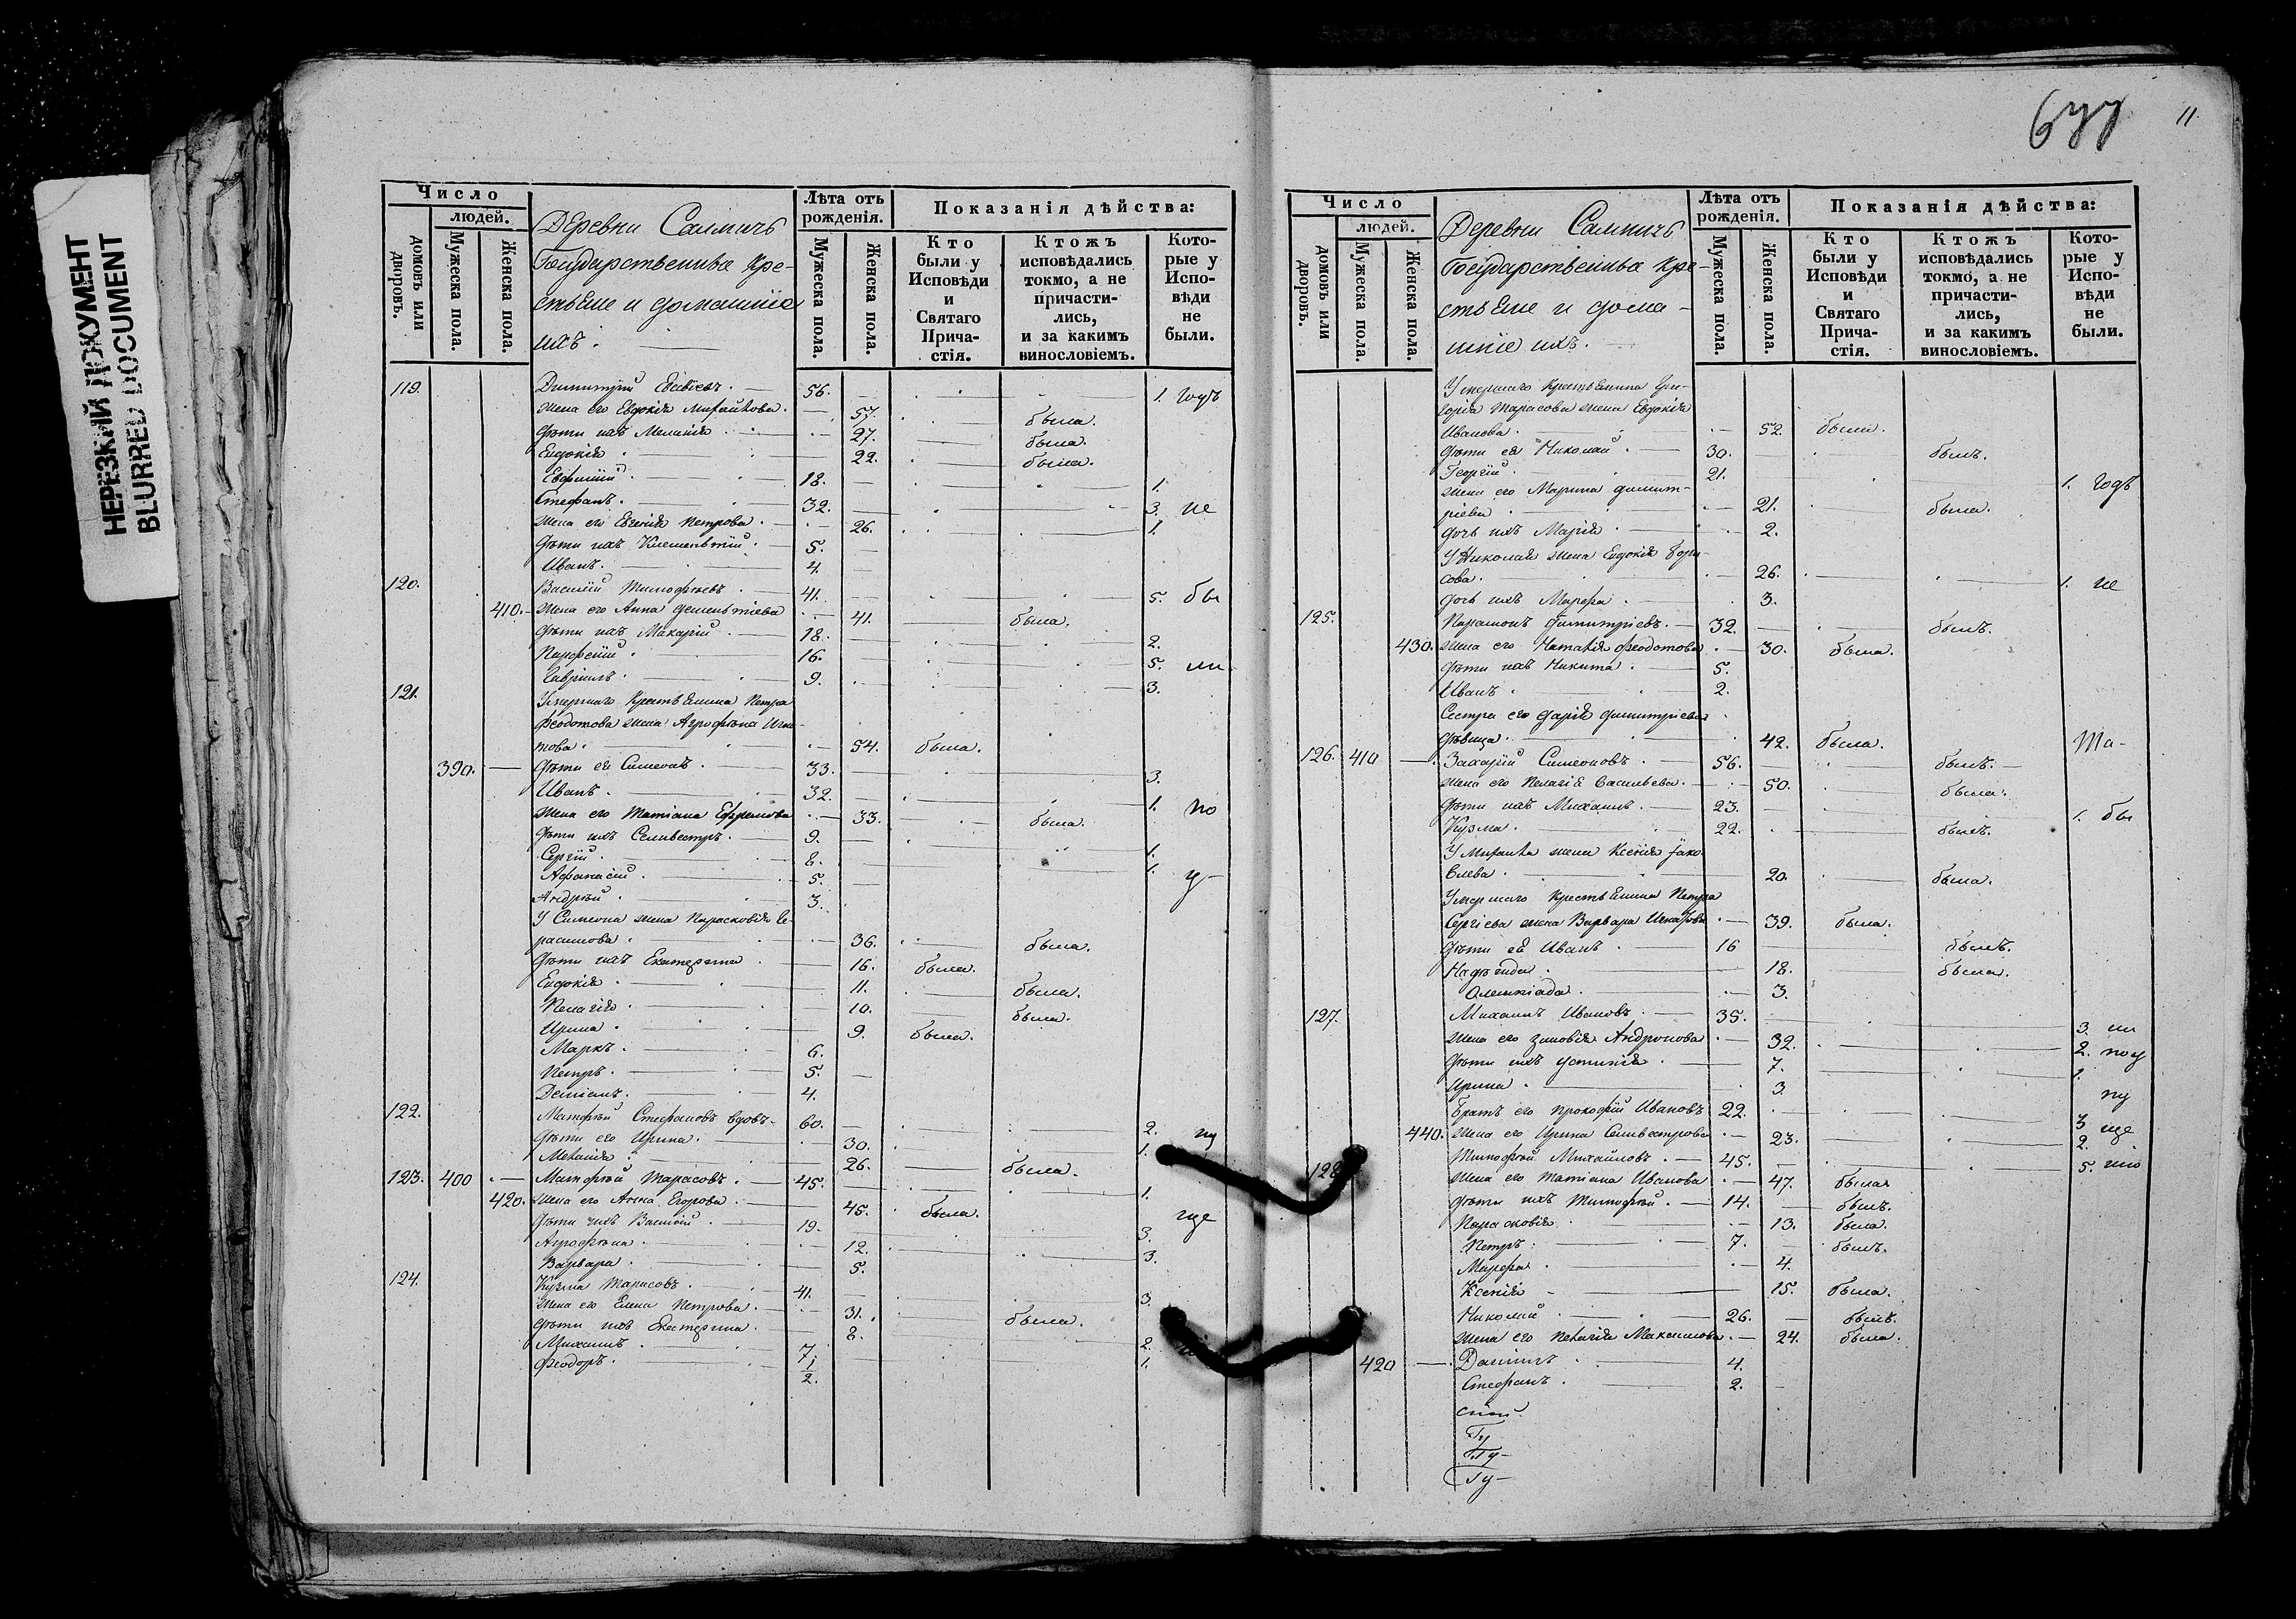 НЕРЕЗКИЙ ДОКУМЕНТ
BLURRED DOCUMENT
Число
людей.
домовъ или дворовъ.
Мужеска пола.
Женска пола.
Деревни
Государственные Кре-
стьяне и домашніе
ихъ.
Лѣта отъ рожденія.
Мужеска пола.
Женска пола.
Показанія дѣйства:
Кто были у Исповѣди и Святаго Прича- стія.
Ктожъ исповѣдались токмо, а не причасти- лись, и за какимъ винословіемъ.
Кото- рые у Испо- вѣди не были.
119. Димитрій 56. 1. годъ
жена его Евдокія Михайлова. 57. была.
дѣти ихъ Меланія 27. была.
Евдокія 22. была.
Евфимій 18. 1.
Стефанъ. 32. 3. не
жена его Евгенія Петрова. 26. 1.
дѣти ихъ 5.
Иванъ. 4.
120. Василій Тимофѣевъ 41. 5. бы
410. жена его Анна Дементіева 41. была.
дѣти ихъ Макарій 18. 2.
Парфеній 16. 5. ли
Гавріилъ 9. 3.
121. Умершаго Крестьянина Петра
Феодотова жена Агрофѣна Игна-
това. 54. была.
390. дѣти ея Симеонъ. 33. 3.
Иванъ. 32. 1. по
жена его Татіана Ефремова 33. была.
дѣти ихъ Селивестръ. 9. 1.
Сергій 8. 1.
Афанасій 5. у-
Андрей 3.
У Симеона жена Парасковія Ге-
расимова. 36. была.
дѣти ихъ Екатерина 16. была.
Евдокія. 11. была.
Пелагія. 10. была.
Ирина 9. была.
Маркъ. 6.
Петръ. 5.
Даміанъ. 4.
122. Матфей Стефановъ вдовъ- 60. 2.
дѣти его Ирина. 30. 1.
Меланія 26. была.
123. 400 Матфей Тарасовъ. 45. 1.
420. жена его Анна Егорова. 45. была. где
дѣти ихъ Василій 19. 3.
Агрофѣна. 12. 3.
Варвара. 5.
124. Кузма Тарасовъ. 41. 3.
жена его Елена Петрова. 31. была.
дѣти ихъ Екатерина. 8. 2.
Михаилъ 7. 1.
Феодоръ. 1/2.
677 11
Число
людей.
домовъ или дворовъ.
Мужеска пола.
Женска пола.
Деревни
Государственные Кре-
стьяне и дома-
шніе ихъ.
Лѣта отъ рожденія.
Мужеска пола.
Женска пола.
Показанія дѣйства:
Кто были у Исповѣди и Святаго Прича- стія.
Ктожъ исповѣдались токмо, а не причасти- лись, и за какимъ винословіемъ.
Кото- рые у Испо- вѣди не были.
Умершаго Крестьянина Гри-
горія Тарасова жена Евдокія
Иванова. 52. была.
дѣти ея Николай 30. былъ.
Георгій 21. 1. годъ
жена его Марина Димит-
ріева 21. была.
дочь ихъ Марія 2.
У Николая жена Евдокія Бори-
сова. 26. 1. не
дочь ихъ Марфа 3.
125. Парамонъ Димитріевъ. 32. былъ.
430. жена его Наталія Феодотова 30. была.
дѣти ихъ Никита 5.
Иванъ. 2.
Сестра его Дарія Димитріева
дѣвица. 42. была. Та-
126. 410 Захарій Симеоновъ 56. былъ.
жена его Пелагія Васильева. 50. была.
дѣти ихъ Михаилъ. 23. 1. бы
Кузма. 22. былъ.
У Михаила жена Ксенія Іако-
влева. 20. была.
Умершаго Крестьянина Петра
Сергіева жена Варвара 39. была.
дѣти ея Иванъ 16 былъ.
Надежда. 18. была.
Олимпіада. 3.
127. Михаилъ Ивановъ. 35. 3.
жена его Зиновія Андронова 32. 2.
дѣти ихъ Устинія. 7. 1.
Ирина. 3.
Братъ его Прокофій Ивановъ 22. 3
440. жена его Ирина Селивестрова 23. 2.
128. Тимофей Михайловъ. 45. 5.
жена его Татіана Иванова 47. была
дѣти ихъ Тимофей. 14. былъ.
Парасковія 13. была.
Петръ. 7. былъ.
Марфа. 4.
Ксенія 15. была.
Николай 26. былъ.
жена его Наталія Максимова. 24. была.
420 Даніилъ 4.
Стефанъ 2.
Гу
Гу-
Гу-